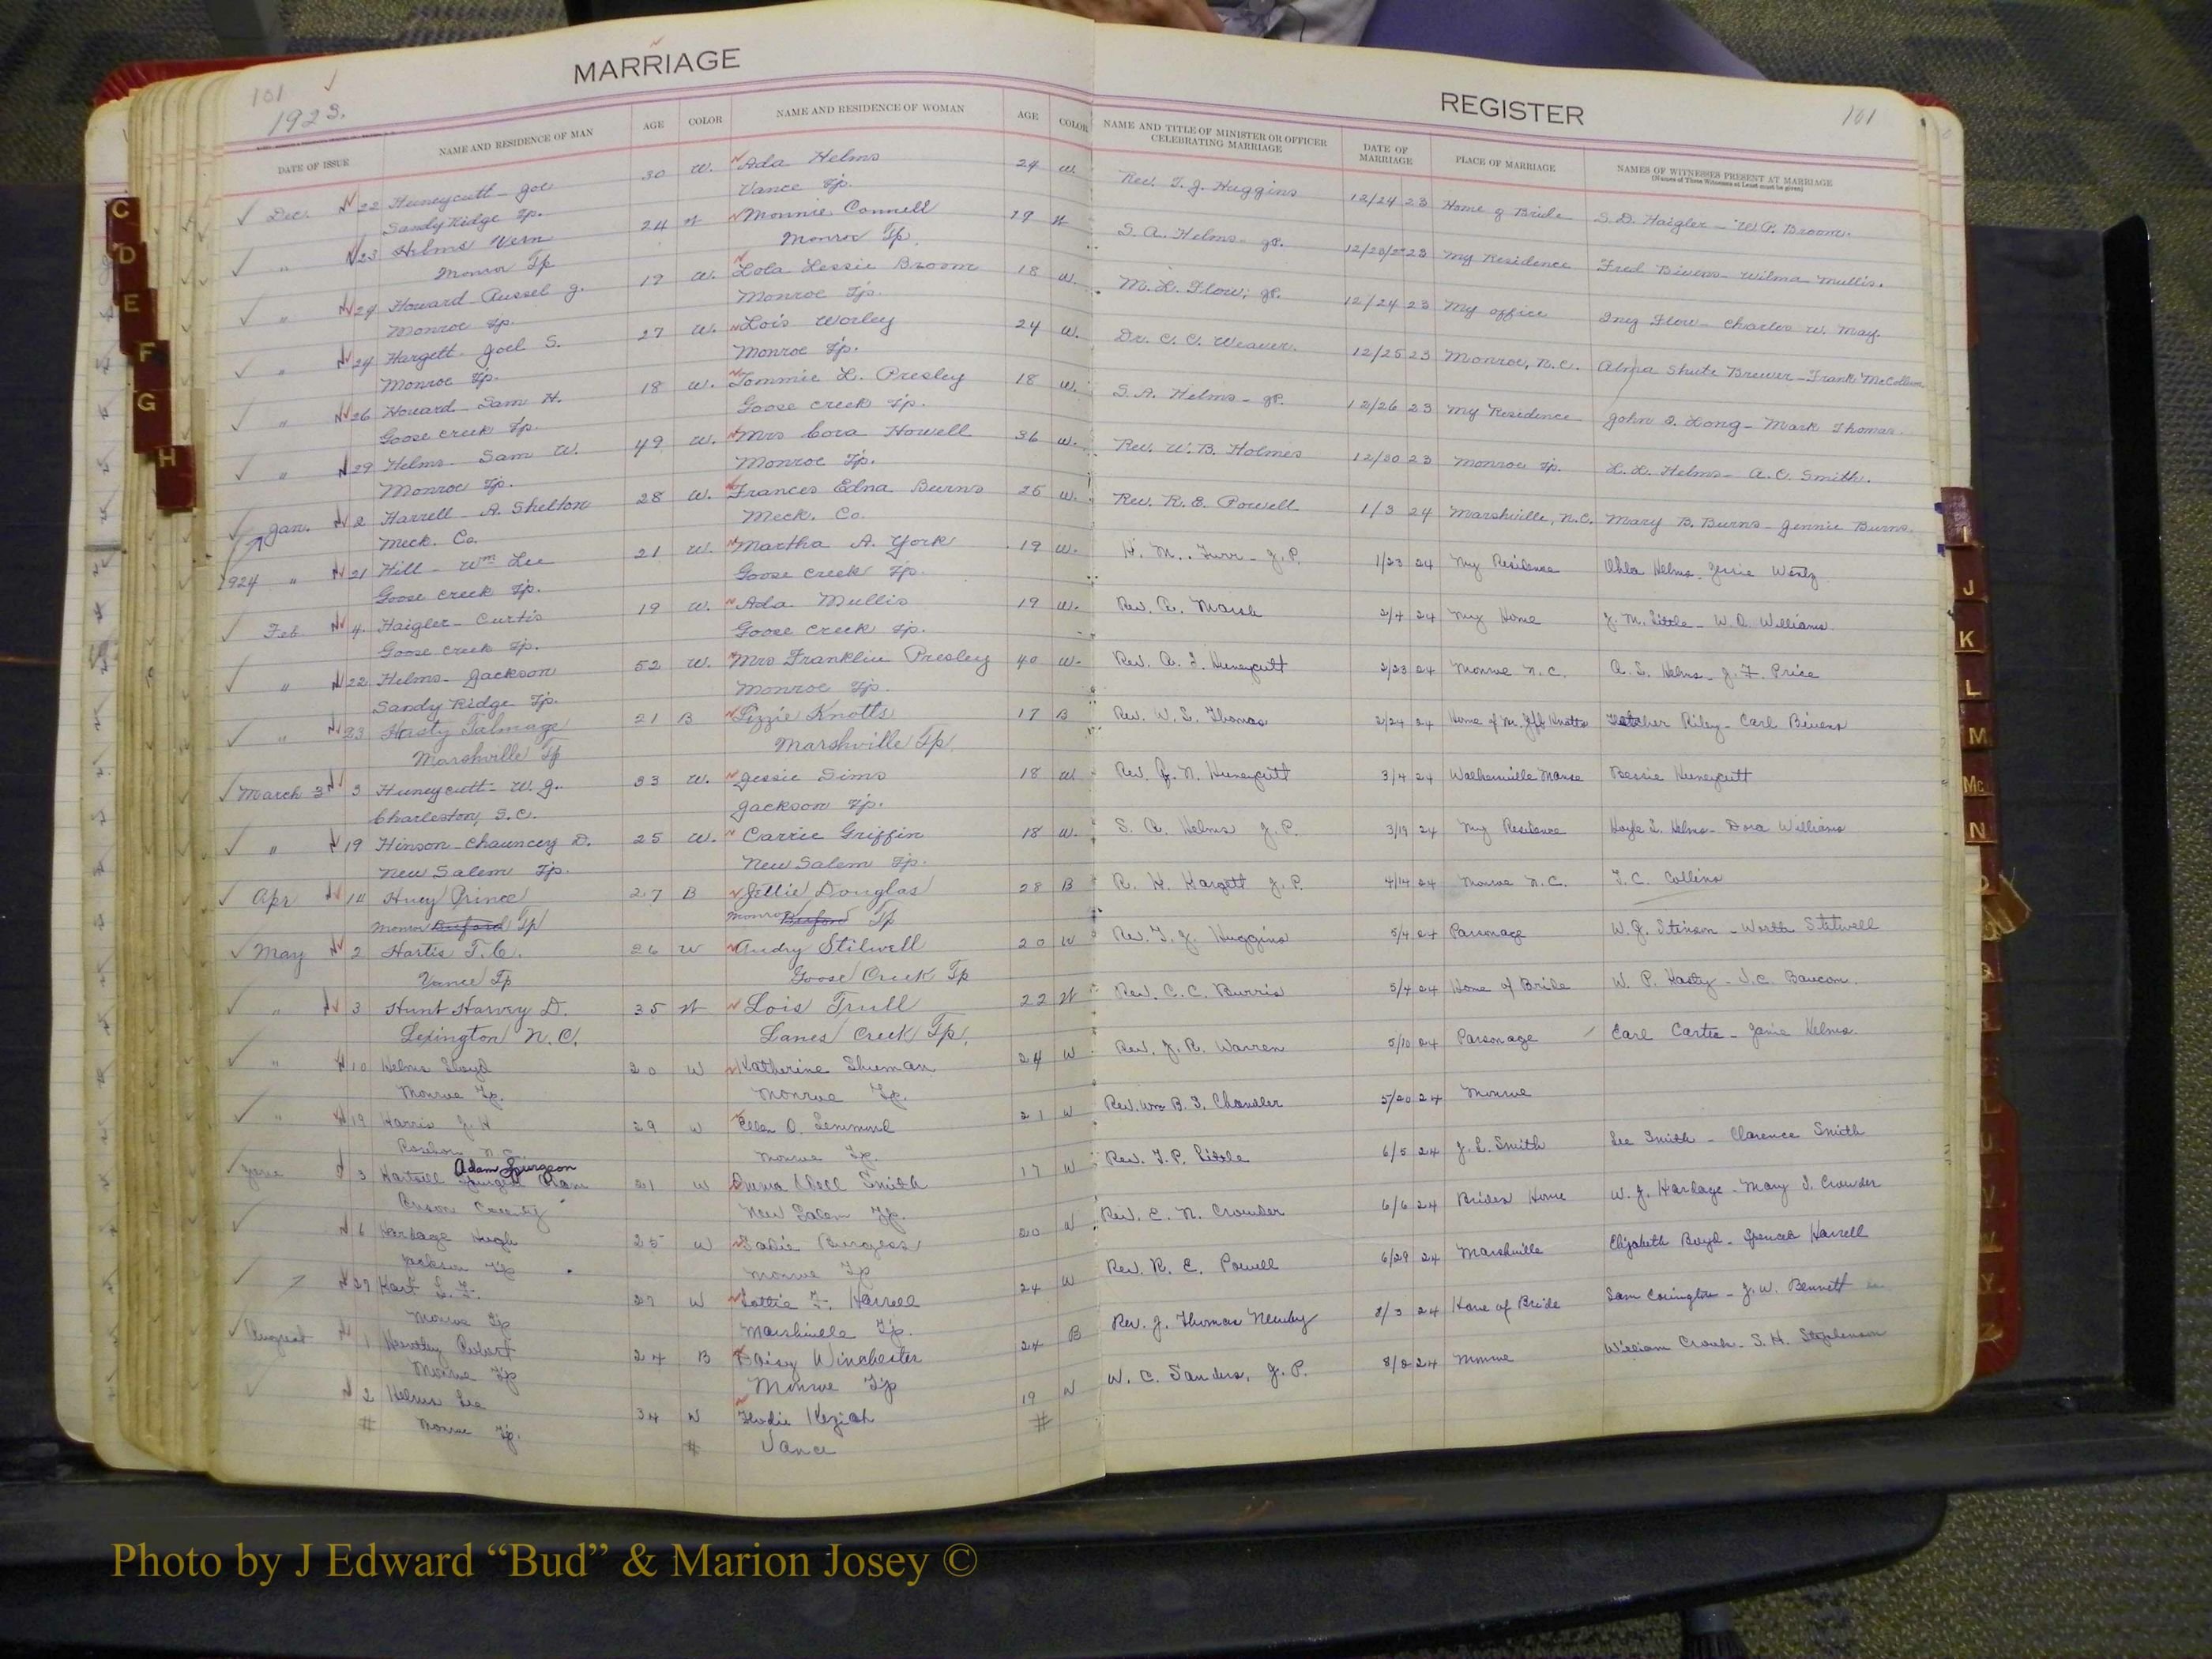 101
1923.
MARRIAGE
REGISTER
101
DATE OF ISSUE NAME AND RESIDENCE OF MAN AGE COLOR NAME AND RESIDENCE OF WOMAN AGE COLOR NAME AND TITLE OF MINISTER OR OFFICER CELEBRATING MARRIAGE DATE OF MARRIAGE PLACE OF MARRIAGE NAMES OF WITNESSES PRESENT AT MARRIAGE
(Names of Three Witnesses at Least must be given)
Dec. 22 Huneycutt - Joe 30 W. Ada Helms 24 W. Rev. T. J. Huggins 12/24 23 Home of Bride S. D. Haigler - W. P. Broom.
Sandy Ridge Tp. Vance Tp.
" 23 Helms Vern 24 W Monnie Connell 19 W S. A. Helms - JP. 23 My Residence Fred Bivens - Wilma Mullis.
Monroe Tp Monroe Tp.
" 24 Howard Russel J. 19 W. Lola Lessie Broom 18 W. M. L. Flow, JP. 12/24 23 My office Inez Flow - Charles W. May.
Monroe Tp. Monroe Tp.
" 24 Hargett - Joel S. 27 W. Lois Worley 24 W. Dr. C. C. Weaver. 12/25 23 Monroe, N.C. Alma Shute Brewer - Frank McCollum
Monroe Tp. Monroe Tp.
" 26 Howard - Sam H. 18 W. Tommie L. Presley 18 W. S. A. Helms - JP. 12/26 23 My Residence John D. Long - Mark Thomas.
Goose Creek Tp. Goose Creek Tp.
" 29 Helms - Sam W. 49 W. Mrs Cora Howell 36 W. Rev. W. B. Holmes 12/30 23 Monroe Tp. L. L. Helms - A. C. Smith.
Monroe Tp. Monroe Tp.
Jan. 2 Harrell - A. Shelton 28 W. Frances Edna Burns 25 W. Rev. R. E. Powell 1/3 24 Marshville, N.C. Mary B. Burns - Jennie Burns.
Meck. Co. Meck. Co.
1924 " 21 Hill - Wm Lee 21 W. Martha A. York 19 W. H. M. Furr - J.P. 1/23 24 My Residence Helms - Jessie Wertz
Goose Creek Tp. Goose Creek Tp.
Feb 4 Haigler - Curtis 19 W. Ada Mullis 19 W. Rev. A. Marsh 2/4 24 My Home J. M. Little - W. D. Williams.
Goose Creek Tp. Goose Creek Tp.
" 22 Helms - Jackson 52 W. Mrs Franklin Presley 40 W. Rev. A. J. Huneycutt 2/23 24 Monroe N.C. A. S. Helms - J. F. Price
Sandy Ridge Tp. Monroe Tp.
" 23 Hasty Talmage 21 B Lizzie Knotts 17 B Rev. W. S. Thomas 2/24 24 Home of Mr. Jeff Knotts Fletcher Riley - Carl Bivens
Marshville Tp Marshville Tp.
March 3 3 Huneycutt - W. J. 33 W. Jessie Sims 18 W Rev. J. N. Huneycutt 3/4 24 Walkersville Manse Bessie Huneycutt
Charleston, S.C. Jackson Tp.
" 19 Hinson - Chauncey D. 25 W. Carrie Griffin 18 W. S. A. Helms J. P. 3/19 24 My Residence Hoyle L. Helms - Dora Williams
New Salem Tp. New Salem Tp.
Apr 14 Huey Prince 27 B Jillie Douglas 28 B R. H. Hargett J. P. 4/14 24 Monroe N.C. T. C. Collins
Monroe Buford Tp Monroe Buford Tp
May 2 Hartis T. C. 26 W Audry Stilwell 20 W Rev. T. J. Huggins 5/4 24 Parsonage W. J. Stinson - Worth Stilwell
Vance Tp Goose Creek Tp
" 3 Hunt Harvey D. 35 W Lois Trull 22 W Rev. C. C. Burris 5/4 24 Home of Bride W. P. Hasty - J. C. Baucom.
Lexington N.C. Lanes Creek Tp.
" 10 Helms Lloyd 20 W Katherine Shuman 24 W Rev. J. R. Warren 5/10 24 Parsonage Earl Carter - Janie Helms.
Monroe Tp. Monroe Tp.
" 19 Harris J. H 29 W Ellen O. Lemmond 21 W Rev. Wm B. S. Chandler 5/20 24 Monroe
N.C. Monroe Tp.
June 3 Hartsell Adam Spurgeon 21 W Emma Dell Smith 17 W Rev. T. P. Little 6/5 24 J. L. Smith Lee Smith - Clarence Smith
County New Salem Tp.
6 Harbage Hugh 25 W Sadie Burgess 20 W Rev. E. N. Crowder 6/6 24 Brides Home W. J. Harbage - Mary I. Crowder
Jackson Tp Monroe Tp
27 Hart L. F. 27 W Lottie F. Harrell 24 W Rev. R. E. Powell 6/29 24 Marshville Elizabeth Boyd - Spencer Harrell
Monroe Tp Marshville Tp.
August 1 Huntley Robert 24 B Daisy Winchester 24 B Rev. J. Thomas Newby 8/3 24 Home of Bride Sam Covington - J. W. Bennett
Monroe Tp Monroe Tp
2 Helms Lee 34 W Flodie Keziah 19 W W. C. Sanders, J. P. 24 Monroe William Crouch - S. H. Stephenson
# Monroe Tp. # Vance #
C
D
E
F
G
H
I
J
K
L
M
Mc
N
Photo by J Edward “Bud” & Marion Josey ©